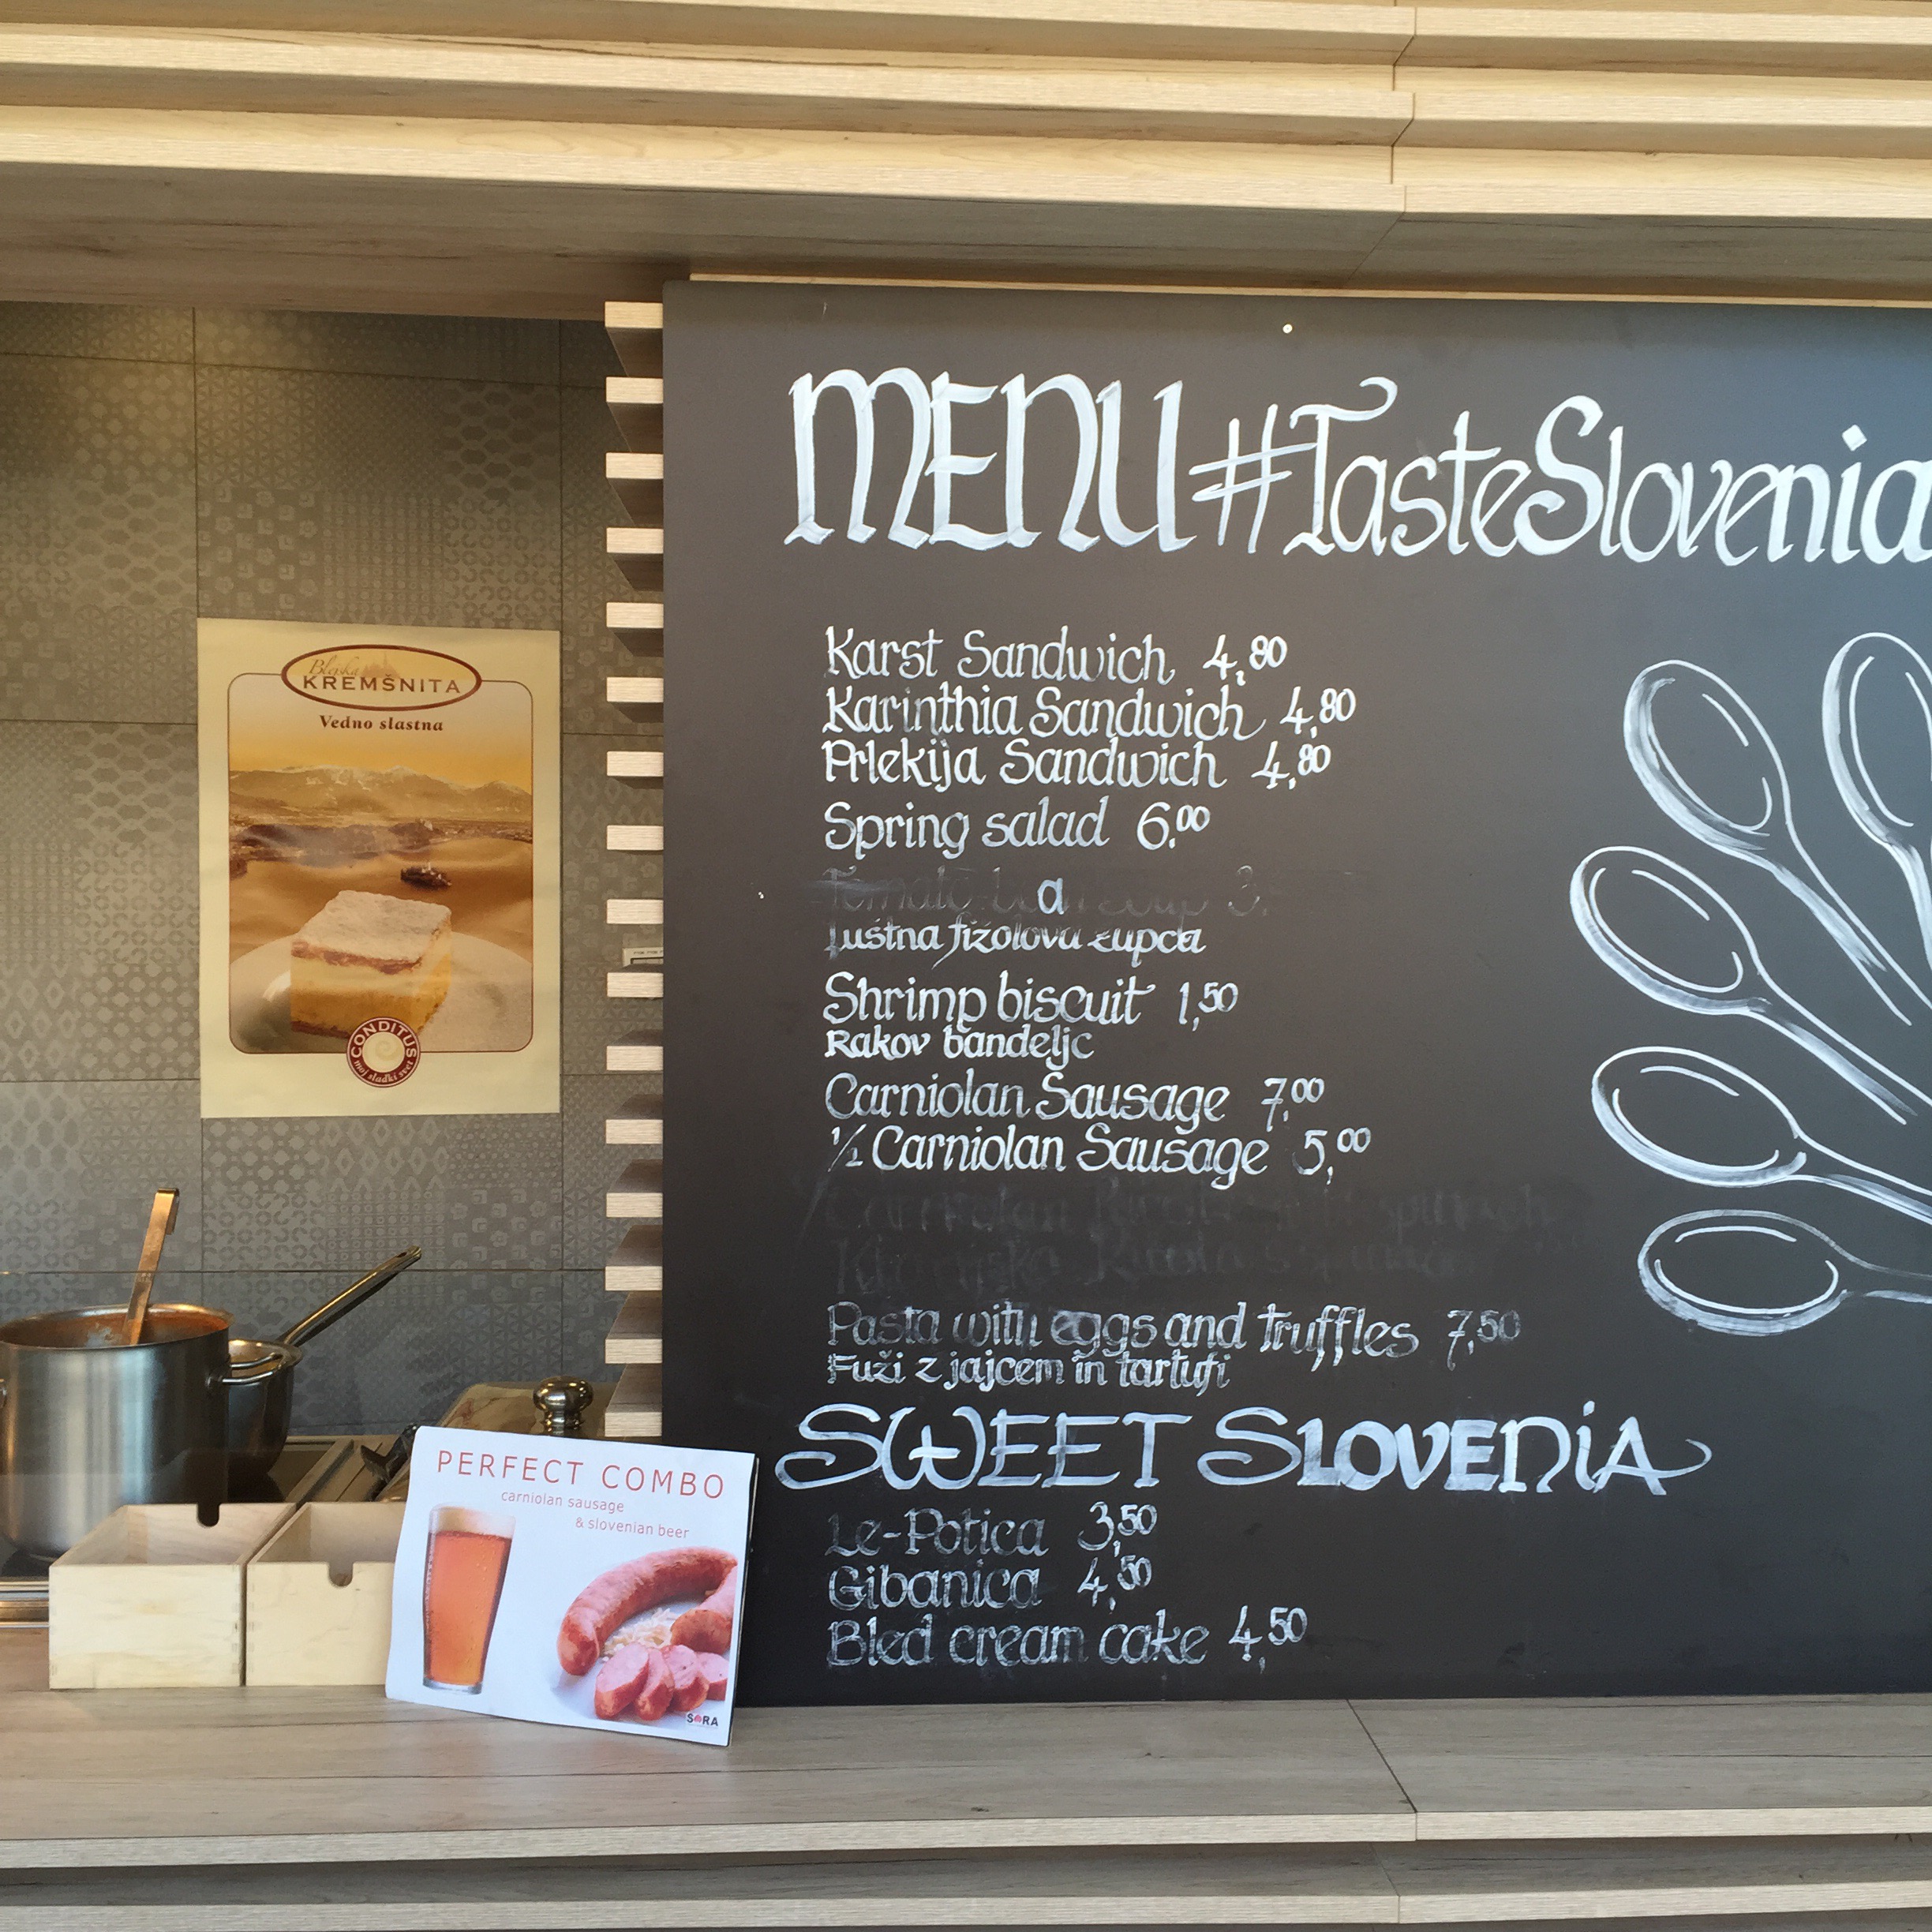 Blejska
KREMŠNITA
Vedno slastna
CONDITUS
moj sladki svet
MENU #TasteSlovenia
Karst Sandwich 4,80
Karinthia Sandwich 4,80
Prlekija Sandwich 4,80
Spring salad 6.00
Luštna fižolova župca
Shrimp biscuit 1,50
Rakov bandeljc
Carniolan Sausage 7,00
1/2 Carniolan Sausage 5,00
Pasta with eggs and truffles 7,50
Fuži z jajcem in tartufi
SWEET SLOVENIA
Le-Potica 3,50
Gibanica 4,50
Bled cream cake 4,50
PERFECT COMBO
carniolan sausage
& slovenian beer
SORA